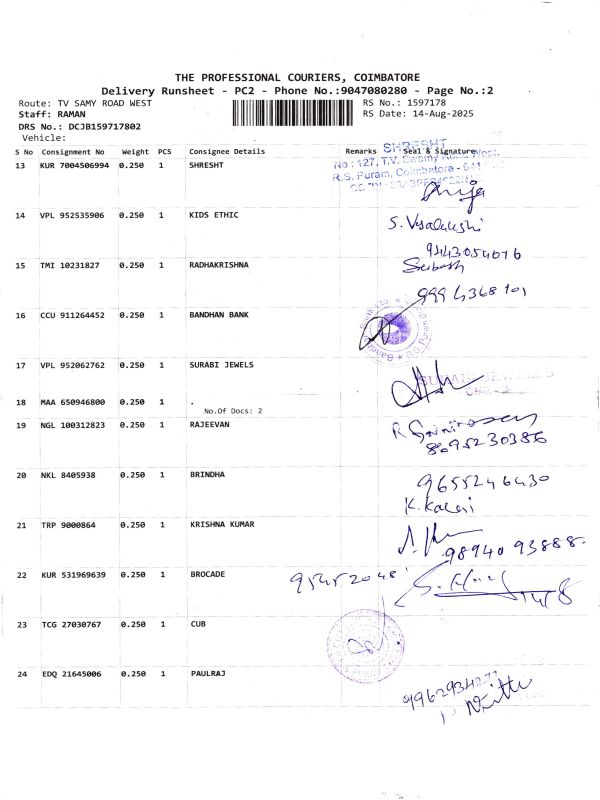 THE PROFESSIONAL COURIERS, COIMBATORE
Delivery Runsheet - PC2 - Phone No.:9047080280 - Page No.:2
Route: TV SAMY ROAD WEST RS No.: 1597178
Staff: RAMAN RS Date: 14-Aug-2025
DRS No.: DCJB159717802
Vehicle:
S No Consignment No Weight PCS Consignee Details Remarks Seal & Signature
SHRESHT
No : 127, T.V. Swamy Road West
R.S. Puram, Coimbatore - 641
13 KUR 7004506994 0.250 1 SHRESHT
14 VPL 952535906 0.250 1 KIDS ETHIC
9443054076
15 TMI 10231827 0.250 1 RADHAKRISHNA
Subash
16 CCU 911264452 0.250 1 BANDHAN BANK
17 VPL 952062762 0.250 1 SURABI JEWELS
18 MAA 650946800 0.250 1 .
No.Of Docs: 2
19 NGL 100312823 0.250 1 RAJEEVAN
8095230386
20 NKL 8405938 0.250 1 BRINDHA
9655246430
K. Kalai
21 TRP 9000864 0.250 1 KRISHNA KUMAR
9894093888
22 KUR 531969639 0.250 1 BROCADE
14/8
23 TCG 27030767 0.250 1 CUB
24 EDQ 21645006 0.250 1 PAULRAJ